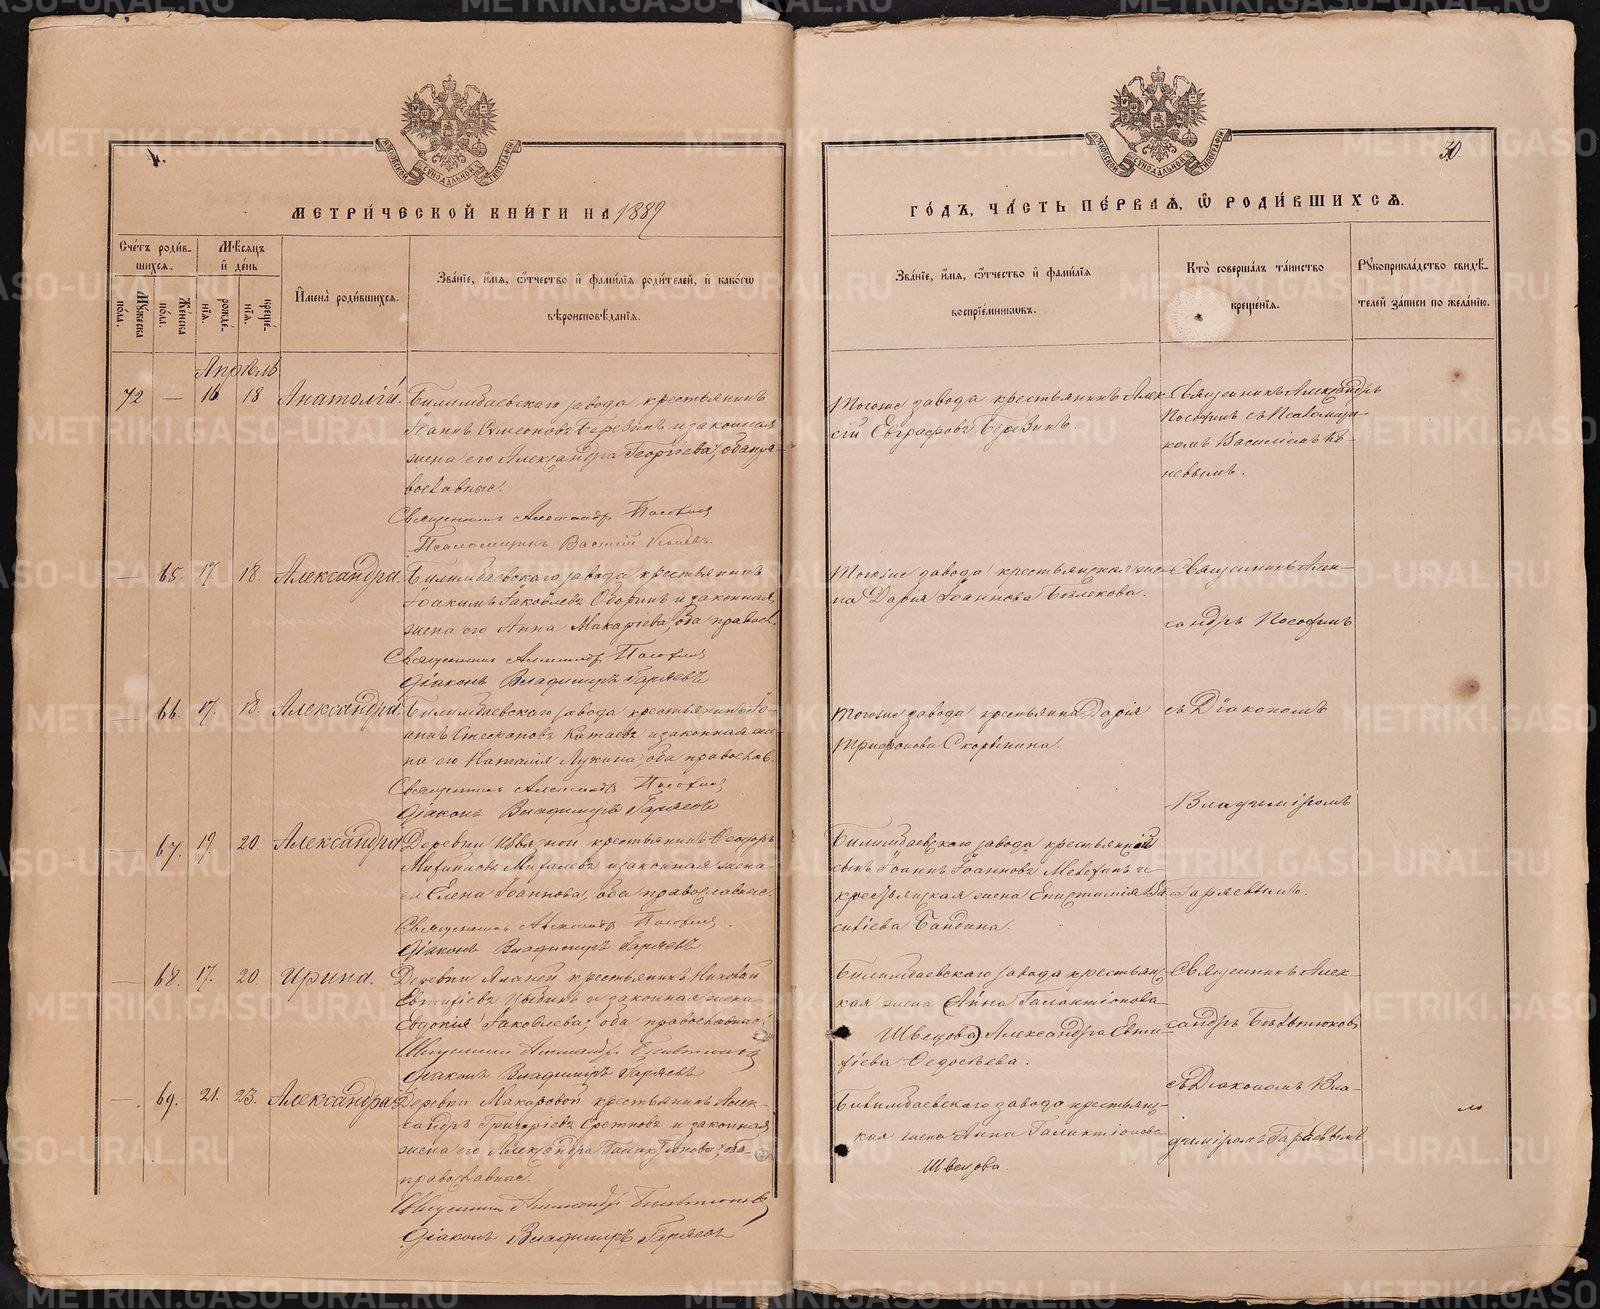 МОСКОВСКОЙ СѴНОДАЛЬНОЙ ТИПОГРАФІИ
МЕТРИ́ЧЕСКОЙ КНИ́ГИ НА 1889
Сче́тъ роди́в-
шихся.
Мѣ́сяцъ
и҆ де́нь
Мꙋ́жеска
по́ла.
Же́нска
по́ла.
рожде́-
нїѧ.
креще́-
нїѧ.
И҆мена̀ роди́вшихся.
Зва́нїе, и҆́мѧ, ѻ҆́тчество и҆ фами́лїѧ роди́телей, и҆ како́гѡ
вѣроисповѣ́данїѧ.
Апрѣль
72 — 16 18 Анатолій.
Билимбаевскаго завода крестьянинъ
Іоаннъ Сѵмеоновъ Березинъ и законная
жена его Александра Георгіева, оба пра-
вославные.
Священникъ Александръ
Псаломщикъ Василій
— 65. 17 18. Александра.
Билимбаевскаго завода крестьянинъ
Іоакимъ Іаковлевъ Оборинъ и законная
жена его Анна Макаріева, оба правосл.
Священникъ Александръ
Діаконъ Владиміръ Гаряевъ
— 66. 17 18. Александра.
Билимбаевскаго завода крестьянинъ Іо-
аннъ Стефановъ Катаевъ и законная же-
на его Наталія Лукина, оба православ.
Священникъ Александръ
Діаконъ Владиміръ Гаряевъ
— 67. 19. 20 Александра
Деревни крестьянинъ Ѳеодоръ
Михаиловъ Михалевъ и законная жена
его Елена Іоаннова, оба православные.
Священникъ Александръ
Діаконъ Владиміръ Гаряевъ
— 68. 17. 20. Ирина.
Деревни крестьянинъ Николай
Евтихіевъ Цыбинъ и законная жена
Евдокія Іаковлева, оба православные.
Священникъ Александръ
Діаконъ Владиміръ Гаряевъ
— 69. 21. 23. Александра
Деревни Макаровой крестьянинъ Алек-
сандръ Григоріевъ и законная
жена его Александра Галактіонова, оба
православные.
Священникъ Александръ
Діаконъ Владиміръ Гаряевъ
МОСКОВСКОЙ СѴНОДАЛЬНОЙ ТИПОГРАФІИ
30.
ГО́ДЪ, ЧА́СТЬ ПЕ́РВАѦ, Ѽ РОДИ́ВШИХСѦ.
Зва́нїе, и҆́мѧ, ѻ҆́тчество и҆ фами́лїѧ
воспрїе́мникѡвъ.
Кто̀ соверша́лъ та́инство
креще́нїѧ.
Рꙋкоприкла́дство свидѣ́-
телей за́писи по жела́нїю.
Тогоже завода крестьянинъ Алек-
сій Евграфовъ Березинъ
Священникъ Александръ
съ Псаломщи-
комъ Василіемъ
Тогоже завода крестьянская же-
на Дарія Іоаннова
Священникъ Алек-
сандръ
Тогоже завода крестьянка Дарія
Трифонова Скорынина.
съ Діакономъ
Владиміромъ
Гаряевымъ.
Билимбаевскаго завода крестьянскій
сынъ Іоаннъ Іоанновъ и
крестьянская жена Епистимія Ва-
силіева Бандина.
Билимбаевскаго завода крестьян-
ская жена (Анна Галактіонова
Швецова) Александра Евти-
хіева Ѳедосѣева.
Священникъ Алек-
сандръ
съ Діакономъ Вла-
диміромъ Гаряевымъ
Билимбаевскаго завода крестьян-
ская жена Анна Галактіонова
Швецова.
METRIKI.GASO-URAL.RU